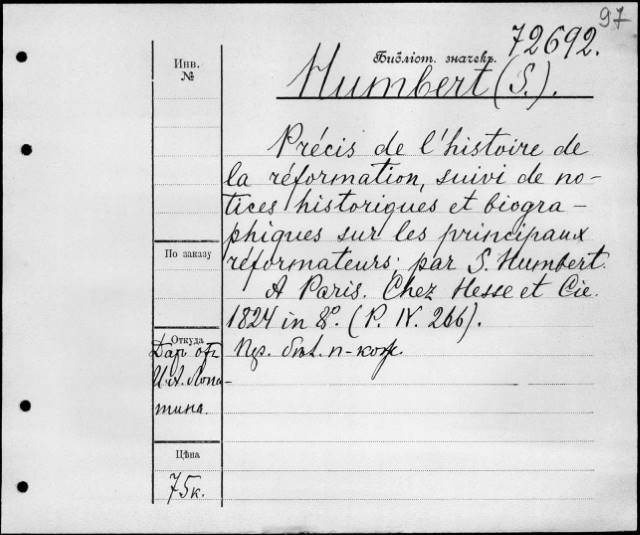 97
72692.
Инв.
№
Библіот. значекъ.
Humbert (S.).
Précis de l'histoire de
la réformation, suivi de no-
tices historiques et biogra-
phiques sur les principaux
réformateurs; par S. Humbert.
По заказу
A Paris. Chez Hesse et Cie.
1824 in 8º. (P. IV. 266).
Откуда
Даръ отъ
И.А. Лопа-
тина.
Цѣна
75к.